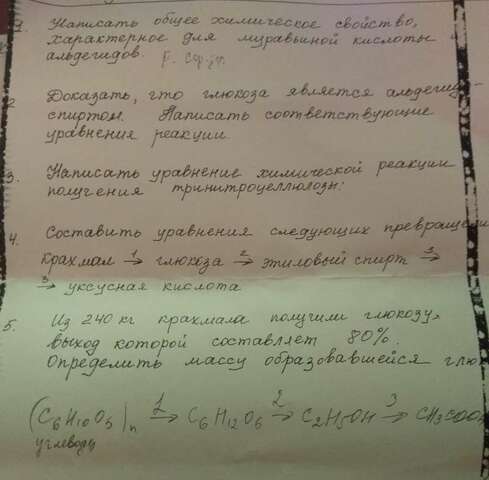 1. Написать общее химическое свойство,
характерное для муравьиной кислоты и
альдегидов.
2 Доказать, что глюкоза является альдегидо-
спиртом. Написать соответствующие
уравнения реакции.
3. Написать уравнение химической реакции
получения тринитроцеллюлозы:
4. Составить уравнения следующих превращени
крахмал 1→ глюкоза 2→ этиловый спирт 3→
3→ уксусная кислота
5. Из 240 кг крахмала получили глюкозу,
выход которой составляет 80%.
Определить массу образовавшейся глю
(C6H10O5)n 1→ C6H12O6 2→ C2H5OH 3→ CH3COOH
углеводы